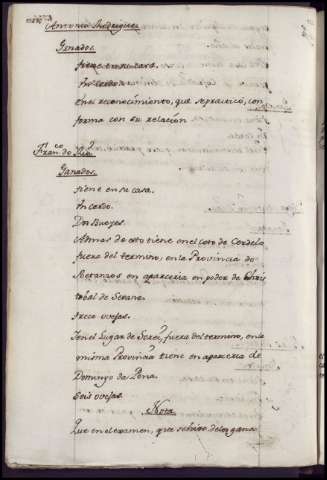 Antonio Rodriguez
Ganados.
tiene en su casa.
Un cerdo.
En el reconocimiento, que se practicó, con
forma con su relacion
Fran.co do Rio
Ganados.
tiene en su casa.
Un cerdo.
Dos Bueyes.
Ademas de esto tiene en el Coto de Cordelo
fuera del termino, en la Provincia de
Betanzos en aparceria en poder de Chris
tobal de Seoane.
trece ovejas.
Y en el Lugar de fuera del termino, en la
misma Provincia tiene en aparceria de
Domingo da Pena.
Seis ovejas.
Nota
Que en el examen, que se hizo de los gana